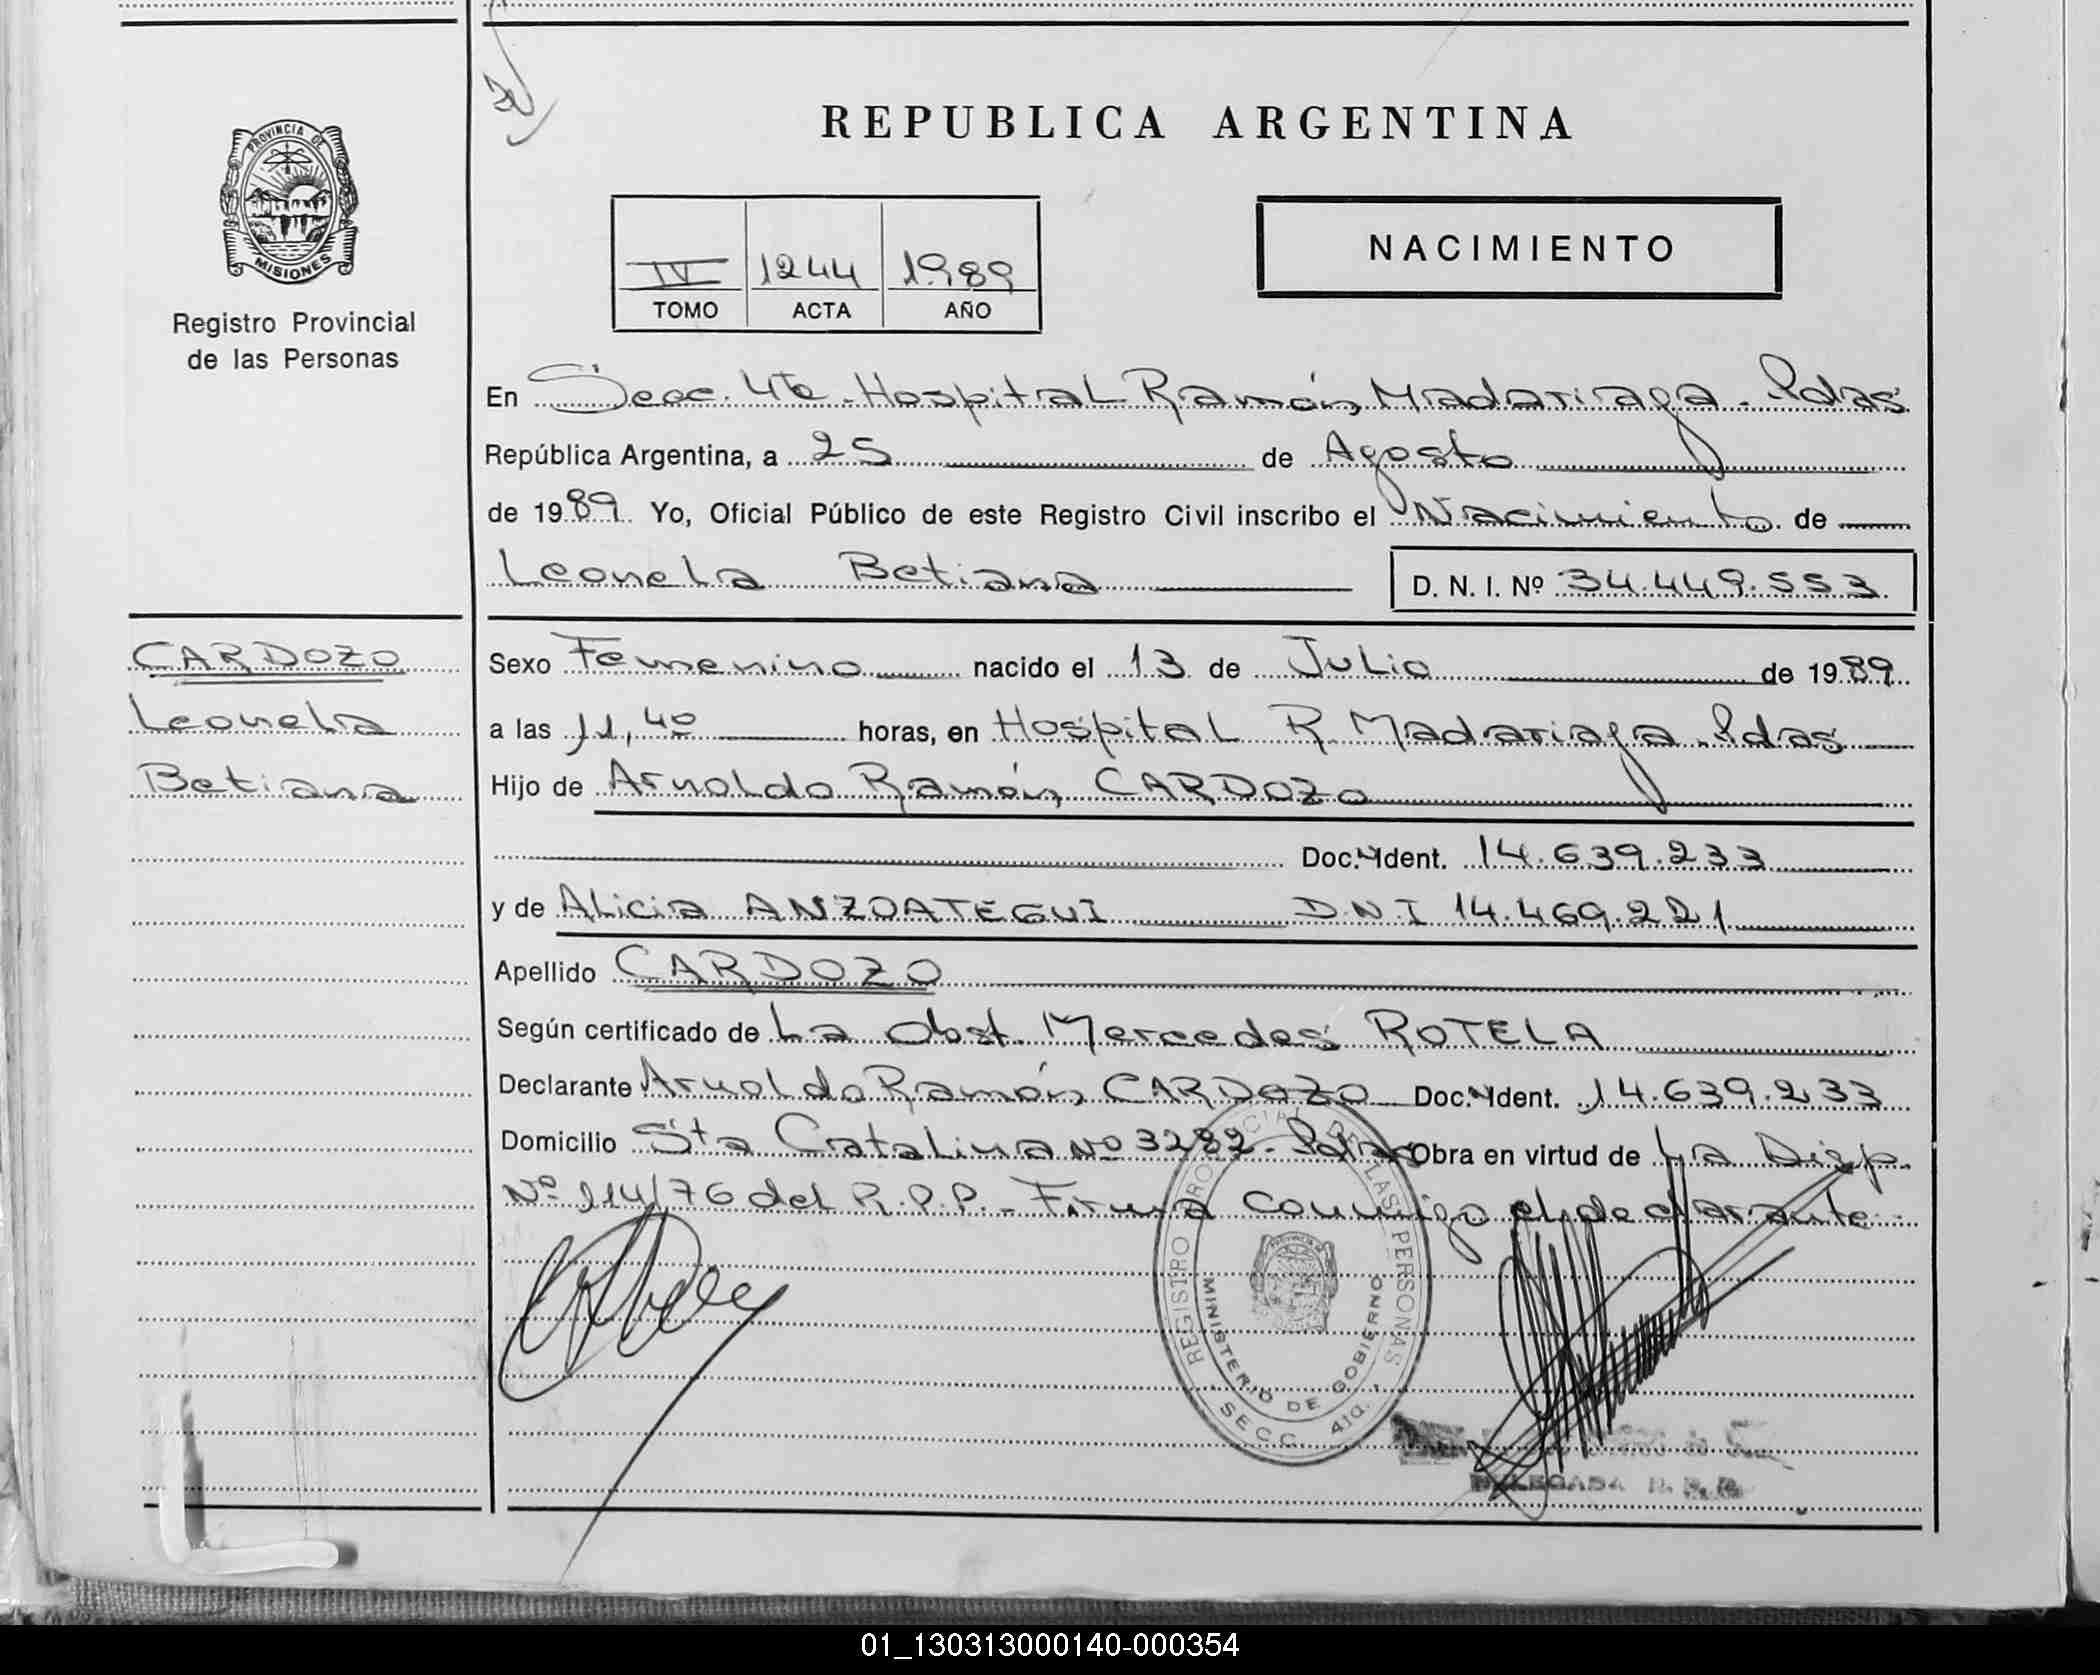 REPUBLICA ARGENTINA
PROVINCIA DE
MISIONES
Registro Provincial
de las Personas
IV 1244 1989
TOMO ACTA AÑO
NACIMIENTO
En Secc. 4ta - Hospital Ramón Madariaga - Pdas
República Argentina, a 25 de Agosto
de 1989 Yo, Oficial Público de este Registro Civil inscribo el Nacimiento de
Leonela Betiana D. N. I. Nº 34.449.553
CARDOZO
Leonela
Betiana
Sexo Femenino nacido el 13 de Julio de 1989
a las 11,40 horas, en Hospital R. Madariaga - Pdas
Hijo de Arnoldo Ramón CARDOZO
Doc. Ident. 14.639.233
y de Alicia ANZOATEGUI D.N.I 14.469.221
Apellido CARDOZO
Según certificado de La Obst. Mercedes ROTELA
Declarante Arnoldo Ramón CARDOZO Doc. Ident. 14.639.233
Domicilio Sta Catalina Nº 3282 - Pdas Obra en virtud de La Disp.
Nº 114/76 del R.P.P. - Firma conmigo el declarante
REGISTRO PROVINCIAL DE LAS PERSONAS
MINISTERIO DE GOBIERNO
SECC. 4ta.
DELEGADA R.P.P.
01_130313000140-000354